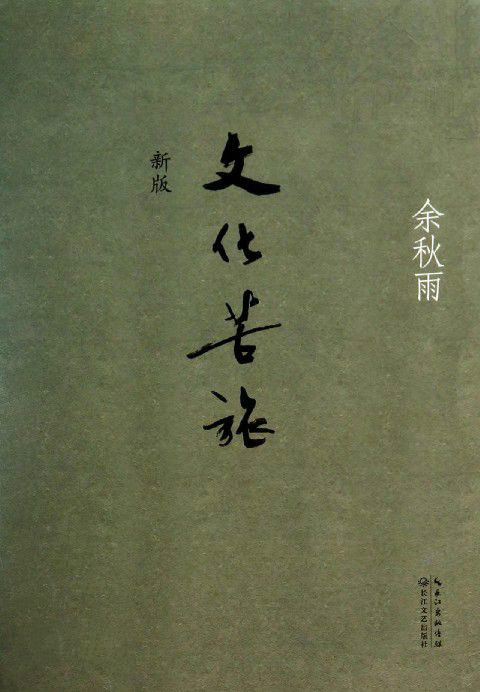 余秋雨
文化苦旅
新版
长江出版传媒
长江文艺出版社